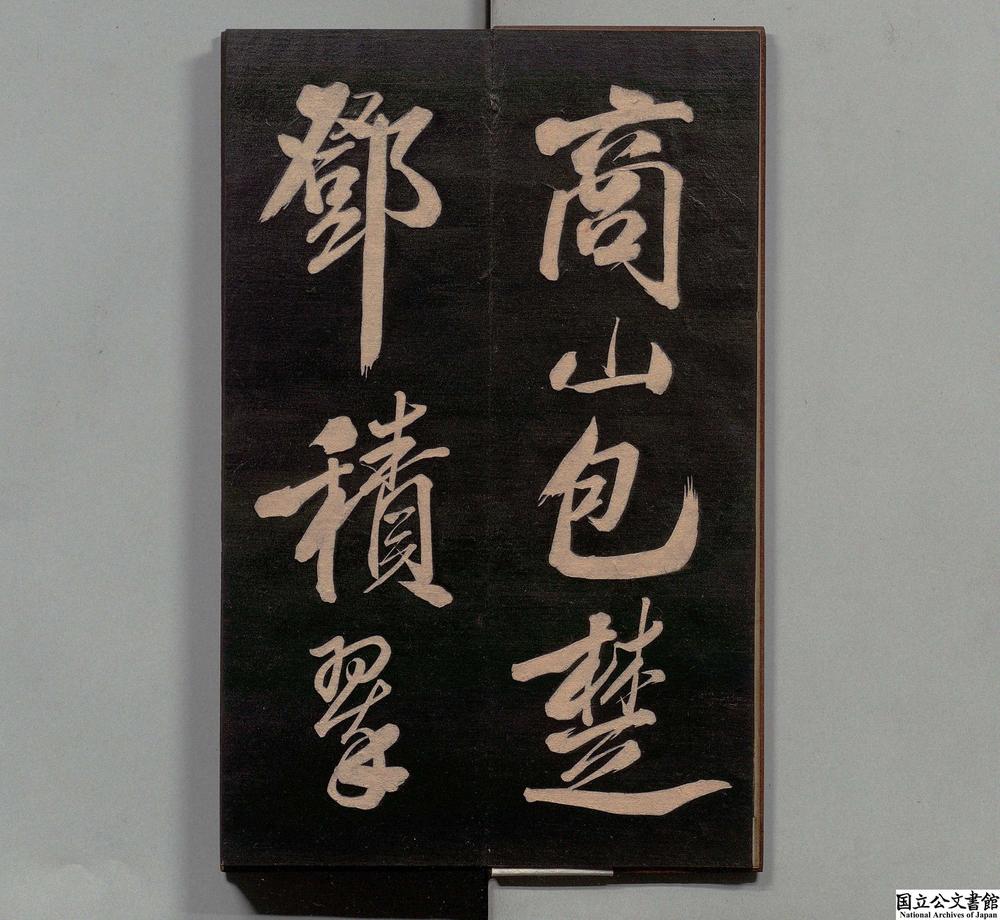 商山包楚
鄧積翠
国立公文書館
National Archives of Japan